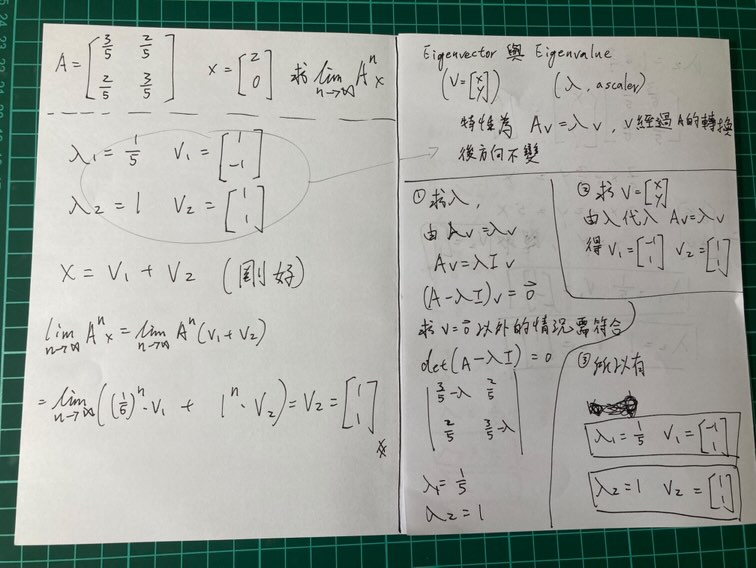 A = [3/5 2/5; 2/5 3/5] x = [2; 0] 求 lim n→∞ Aⁿx
λ₁ = 1/5 V₁ = [1; -1]
λ₂ = 1 V₂ = [1; 1]
x = V₁ + V₂ (剛好)
lim n→∞ Aⁿx = lim n→∞ Aⁿ(V₁+V₂)
= lim n→∞ ((1/5)ⁿ·V₁ + 1ⁿ·V₂) = V₂ = [1; 1]
Eigenvector 與 Eigenvalue
(V=[x; y]) (λ, a scaler)
特性為 Av=λv, v 經過 A 的轉換
後方向不變
① 求λ,
由 Av=λv
Av=λIv
(A-λI)v=0⃗
求 v=0⃗ 以外的情況需符合
det(A-λI)=0
|3/5-λ 2/5; 2/5 3/5-λ|
λ₁=1/5
λ₂=1
② 求 V=[x; y]
由λ代入 Av=λv
得 V₁=[-1; 1] V₂=[1; 1]
③ 所以有
λ₁=1/5 V₁=[-1; 1]
λ₂=1 V₂=[1; 1]